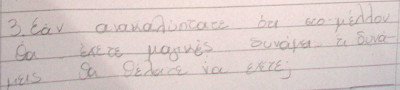 3. Εάν ανακαλύπτατε ότι στο μέλλον
θα έχετε μαγικές δυνάμεις τι δυνά-
μεις θα θέλατε να έχετε;